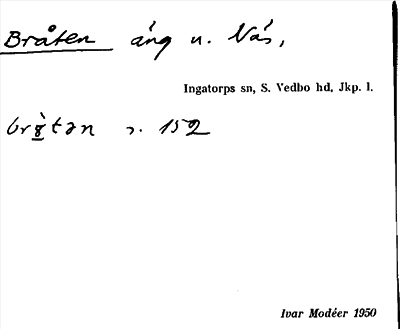 Bråten äng u. Näs,
Ingatorps sn, S. Vedbo hd, Jkp. l.
s. 152
Ivar Modéer 1950